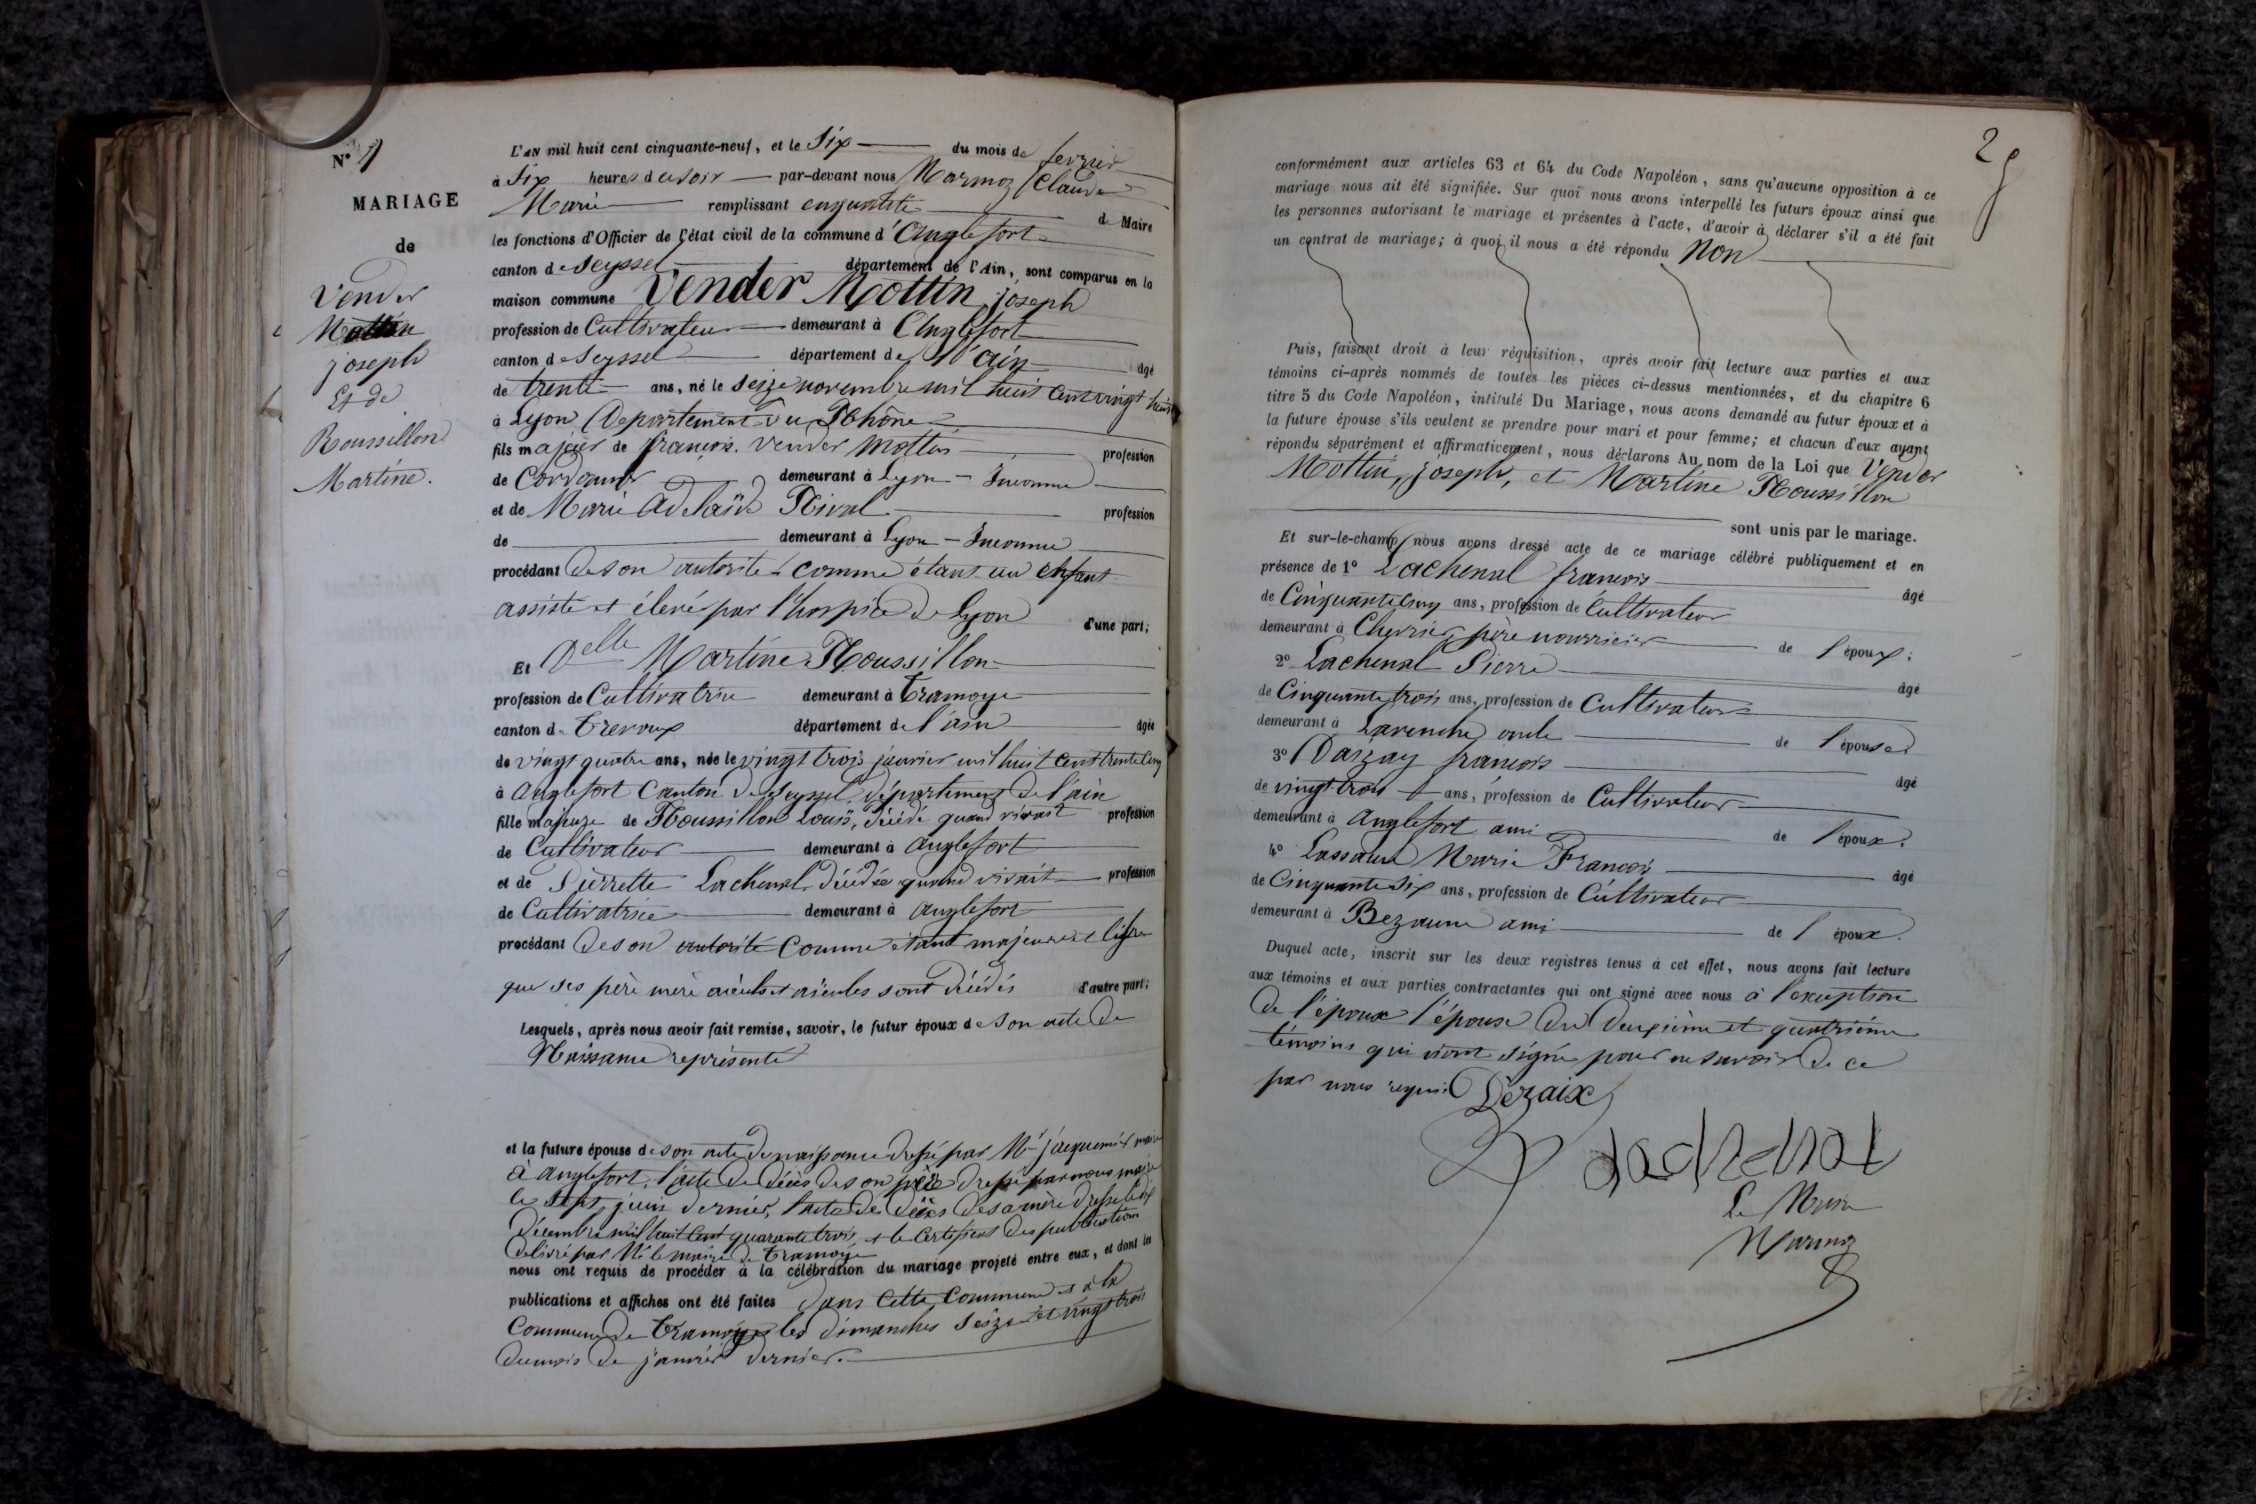 N° 4
MARIAGE
de
Vender
Mottin
joseph
Et de
Roussillon
Martine.
L'AN mil huit cent cinquante-neuf, et le Six du mois de fevrier
à Six heures du soir par-devant nous Marmoz Claude
Marie remplissant
les fonctions d'Officier de l'état civil de la commune d'Anglefort de Maire
canton de Seyssel département de l'Ain, sont comparus en la
maison commune Vender Mottin joseph
profession de Cultivateur demeurant à Anglefort
canton de Seyssel département de l'ain âgé
de trente ans, né le seize novembre mil huit cent vingt huit
à Lyon Département du Rhône
fils majeur de françois Vender Mottin profession
de Cordonnier demeurant à Lyon - Inconnu
et de Marie Adelaïde Rival profession
de demeurant à Lyon - Inconnue
procédant de son autorité comme étant un enfant
assisté et élevé par l'hospice de Lyon d'une part;
Et Delle Martine Roussillon
profession de Cultivatrice demeurant à Tramoye
canton de Trevoux département de l'ain âgée
de vingt quatre ans, née le vingt trois janvier mil huit cent trente cinq
à Anglefort Canton de Seyssel, département de l'ain
fille majeure de Roussillon Louis, décédé quand vivait profession
de Cultivateur demeurant à Anglefort
et de Pierrette Lachenal décédée quand vivait profession
de Cultivatrice demeurant à Anglefort
procédant de son autorité comme étant majeure et libre
que ses père mère aïeuls et aïeules sont décédés d'autre part;
Lesquels, après nous avoir fait remise, savoir, le futur époux de son acte de
Naissance représenté
et la future épouse de son acte de naissance dressé par Mr jacquemier maire
à Anglefort, l'acte de décès de son père dressé par nous maire
le sept juin dernier, l'acte de décès de sa mère dressé le dix
Décembre mil huit cent quarante trois, et le certificat des publications
délivré par Mr le maire de Tramoye
nous ont requis de procéder à la célébration du mariage projeté entre eux, et dont les
publications et affiches ont été faites dans cette Commune et à la
Commune de Tramoye les dimanches seize et vingt trois
du mois de janvier dernier.
2
conformément aux articles 63 et 64 du Code Napoléon, sans qu'aucune opposition à ce
mariage nous ait été signifiée. Sur quoi nous avons interpellé les futurs époux ainsi que
les personnes autorisant le mariage et présentes à l'acte, d'avoir à déclarer s'il a été fait
un contrat de mariage; à quoi il nous a été répondu Non
Puis, faisant droit à leur réquisition, après avoir fait lecture aux parties et aux
témoins ci-après nommés de toutes les pièces ci-dessus mentionnées, et du chapitre 6
titre 5 du Code Napoléon, intitulé Du Mariage, nous avons demandé au futur époux et à
la future épouse s'ils veulent se prendre pour mari et pour femme; et chacun d'eux ayant
répondu séparément et affirmativement, nous déclarons Au nom de la Loi que Vender
Mottin, joseph, et Martine Roussillon
sont unis par le mariage.
Et sur-le-champ nous avons dressé acte de ce mariage célébré publiquement et en
présence de 1° Lachenal françois âgé
de Cinquante cinq ans, profession de Cultivateur
demeurant à père nourricier de l'époux;
2° Lachenal Pierre âgé
de Cinquante trois ans, profession de Cultivateur
demeurant à Lavenche oncle de l'épouse
3° françois âgé
de vingt trois ans, profession de Cultivateur
demeurant à Anglefort ami de l'époux.
4° Marie François âgé
de Cinquante six ans, profession de Cultivateur
demeurant à Bezonne ami de l'époux.
Duquel acte, inscrit sur les deux registres tenus à cet effet, nous avons fait lecture
aux témoins et aux parties contractantes qui ont signé avec nous à l'exception
de l'époux l'épouse du deuxième et quatrième
témoins qui n'ont signé pour ne savoir de ce
par nous requis Dézaix
Lachenal
Le Maire
Marmoz